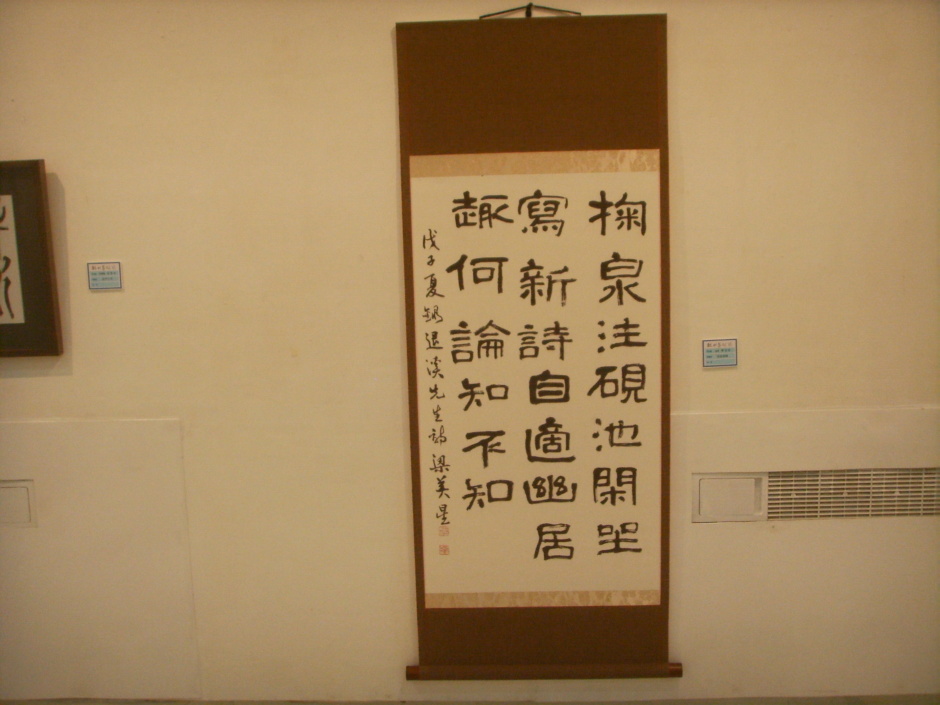 掬泉注硯池閑坐
寫新詩自適幽居
趣何論知不知
戊子夏錄退溪先生詩梁美星